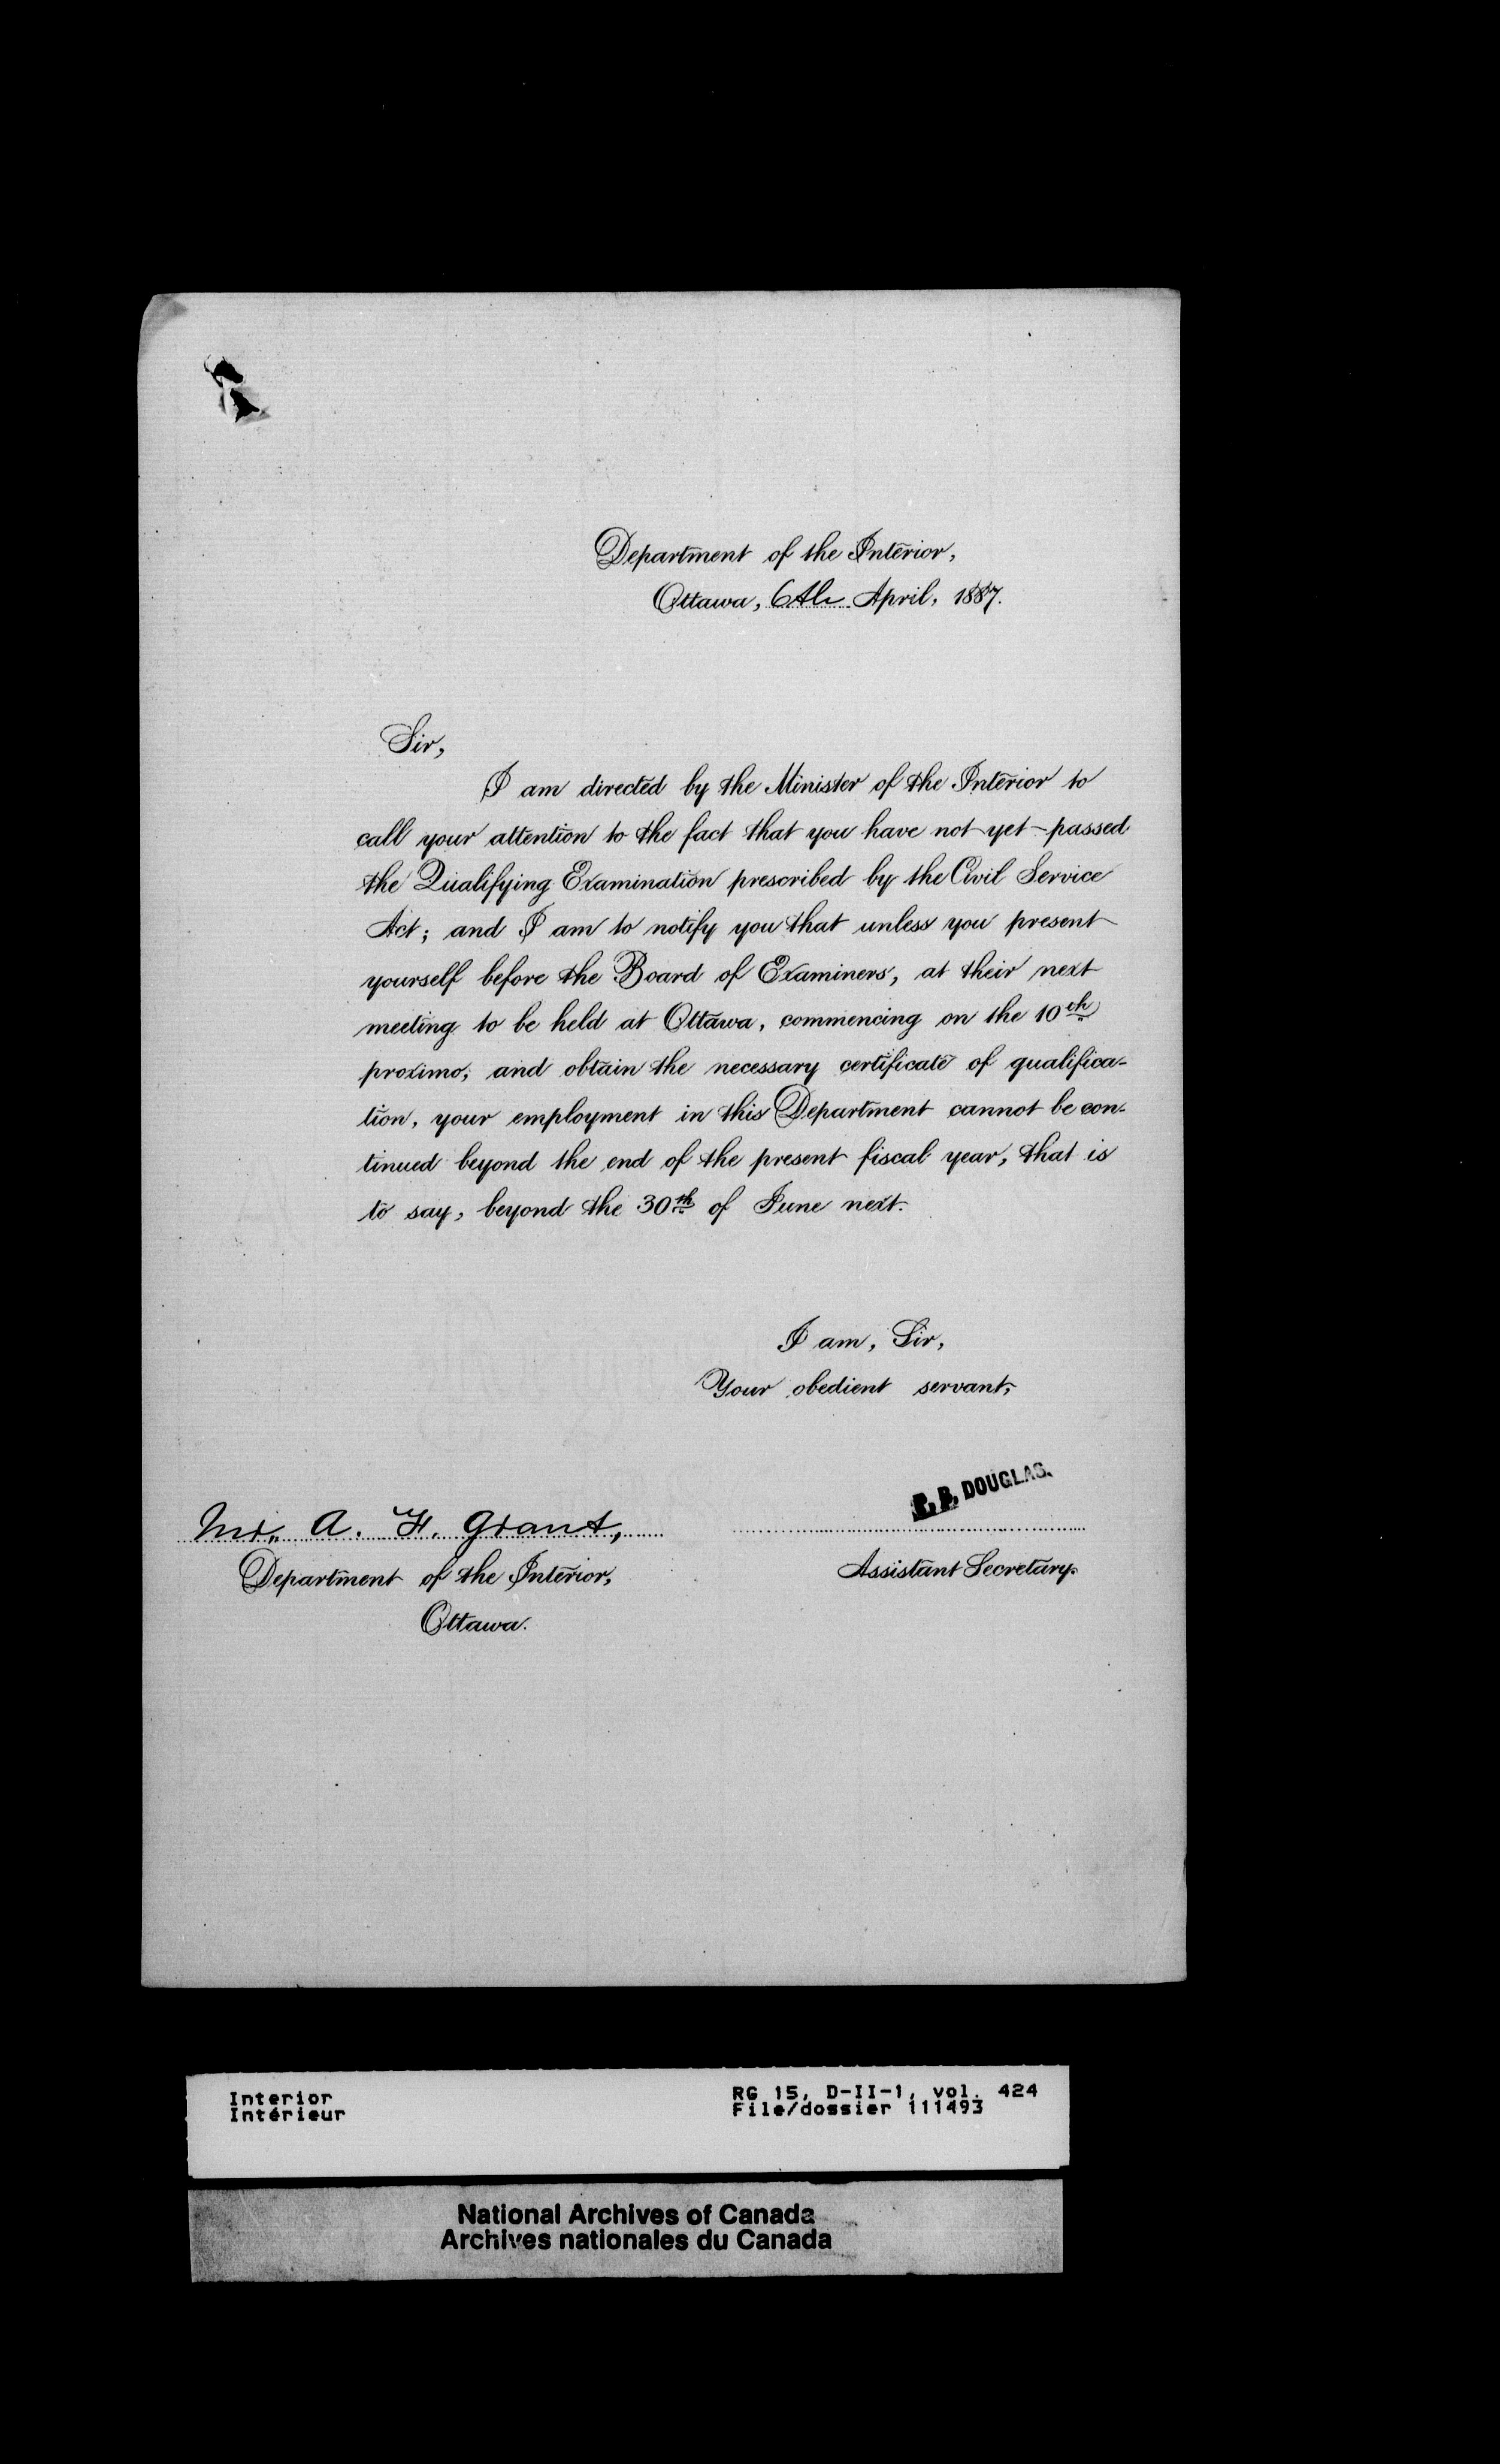 Department of the Interior,
Ottawa, 6th April, 1887.
Sir,
I am directed by the Minister of the Interior to
call your attention to the fact that you have not yet passed
the Qualifying Examination prescribed by the Civil Service
Act; and I am to notify you that unless you present
yourself before the Board of Examiners, at their next
meeting to be held at Ottawa, commencing on the 10th
proximo, and obtain the necessary certificate of qualifica-
tion, your employment in this Department cannot be con-
tinued beyond the end of the present fiscal year, that is
to say, beyond the 30th of June next.
I am, Sir,
Your obedient servant,
P. B. DOUGLAS.
Mr. A. H. Grant,
Assistant Secretary.
Department of the Interior,
Ottawa.
Interior
Intérieur
RG 15, D-II-1, vol. 424
File/dossier 111493
National Archives of Canada
Archives nationales du Canada